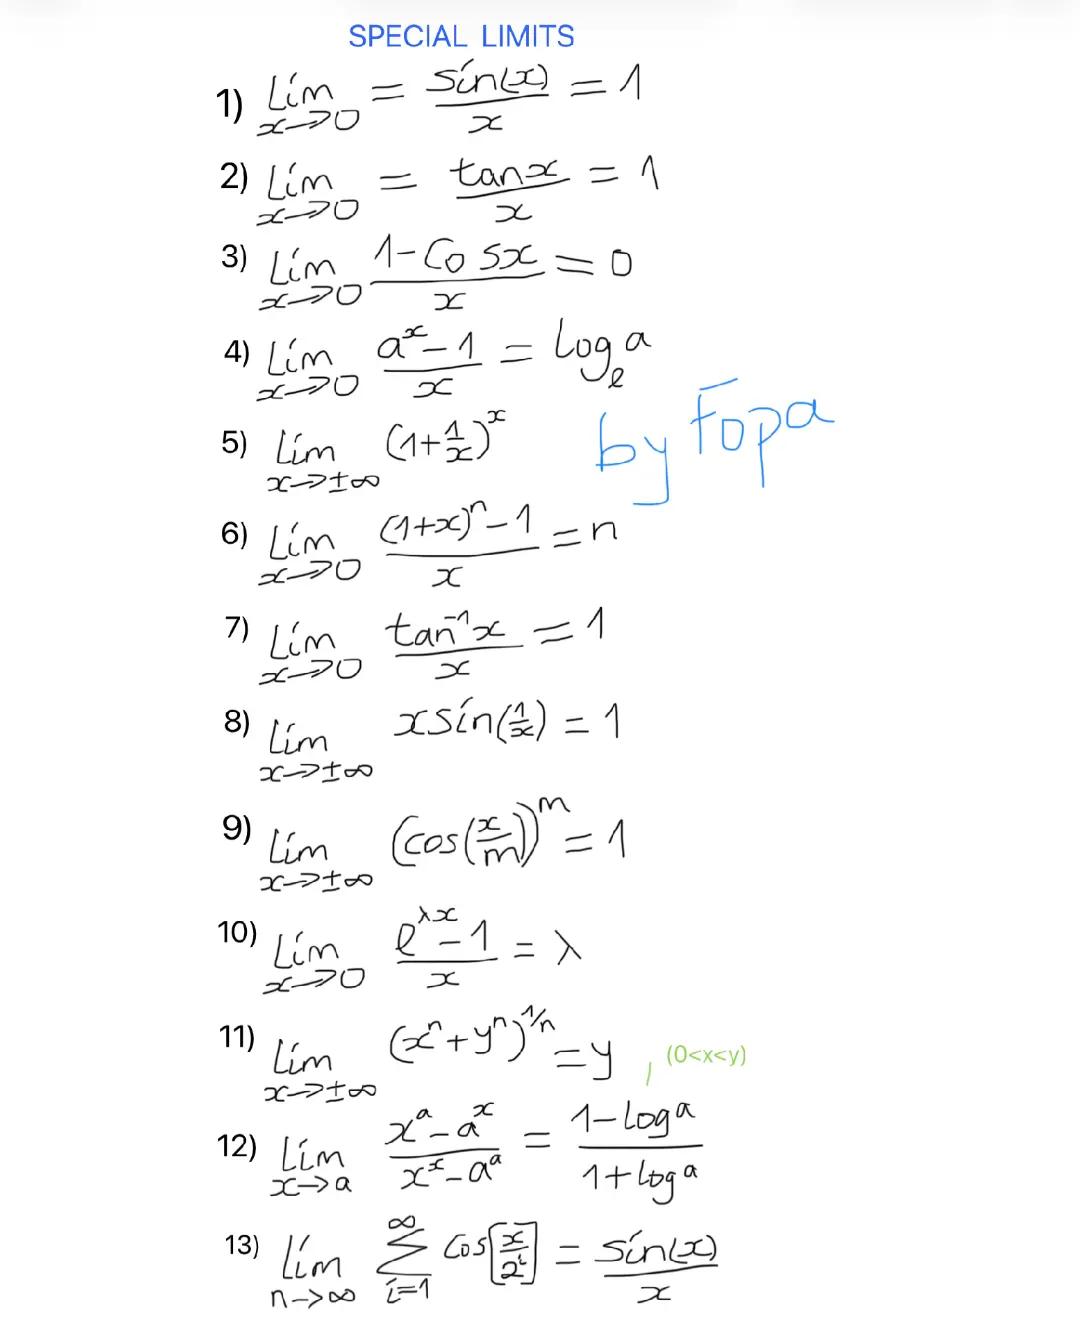 SPECIAL LIMITS
1) lim x→0 = sin(x)/x = 1
2) lim x→0 = tanx/x = 1
3) lim x→0 1-Cosx/x = 0
4) lim x→0 a^x-1/x = log_e a
by Fopa
5) lim x→±∞ (1+1/x)^x
6) lim x→0 (1+x)^n-1/x = n
7) lim x→0 tan^-1 x/x = 1
8) lim x→±∞ xsin(1/x) = 1
9) lim x→±∞ (cos(x/m))^m = 1
10) lim x→0 e^λx-1/x = λ
11) lim x→±∞ (x^n+y^n)^1/n = y , (0<x<y)
12) lim x→a x^a-a^x/x^x-a^a = 1-log a/1+log a
13) lim n→∞ ∑ i=1 ∞ Cos[x/2^i] = sin(x)/x